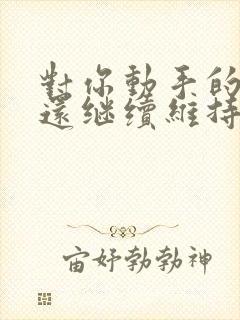 對你動手的
還继續維持
宙好勃勃神